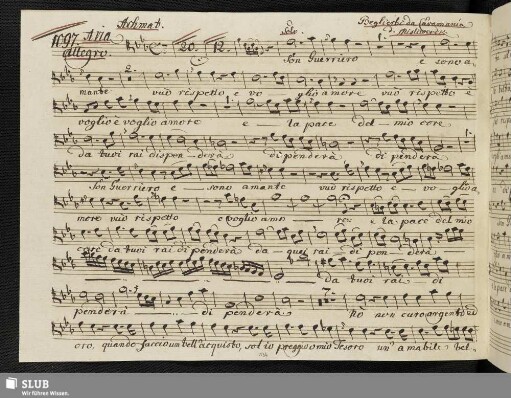 Achmet.
Beglierbei da Caramania
1097. Aria
di Misliweczek
allegro.
20. 12.
Solo
Son Guerriero e sono a
mante vuò rispetto e vo glio amore vuò rispetto e
voglio e voglio amore e la pace del mio core
da tuoi rai dispenderà dipenderà di penderà
Son Guerriero e sono amante vuò rispetto e vo glio a
more vuò rispetto e voglio amo re e la pace del mio
core da tuoi rai dipenderà da quei rai di pen derà
da tuoi rai di
penderà di penderà Nò non curo argento ed
oro, quando faccio un bell' acquisto, sol io preggio o mio Tesoro un' amabile bel
SLUB
Wir führen Wissen.